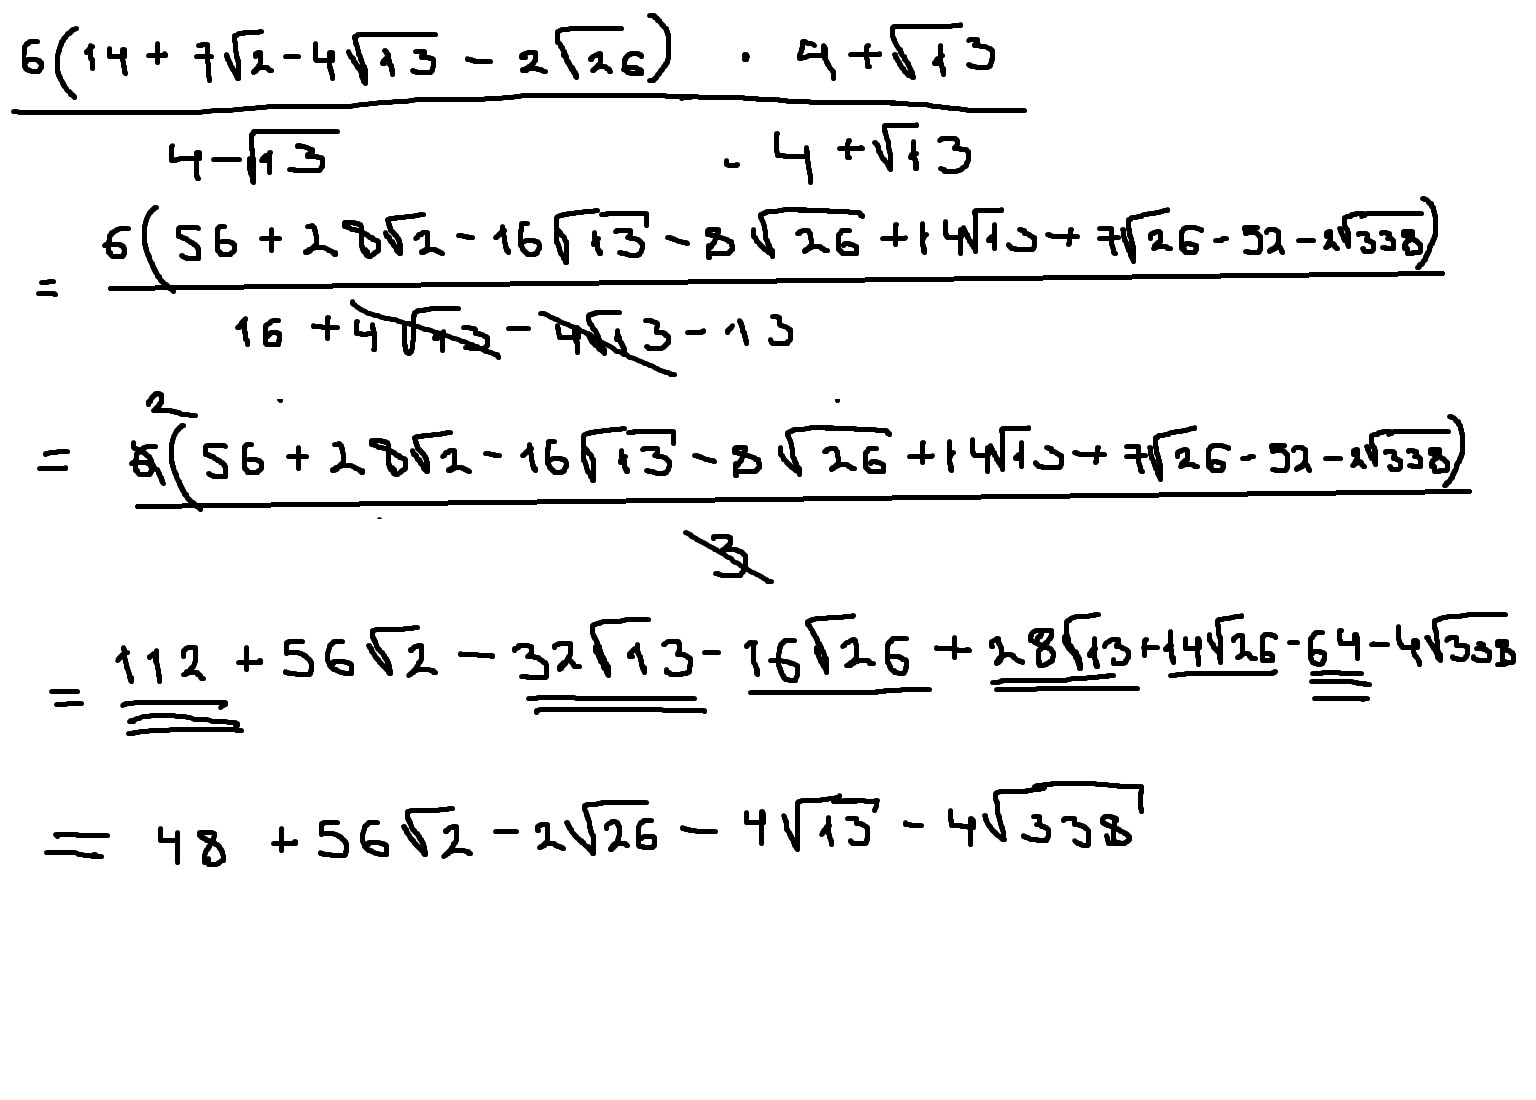 6(14 + 7√2 - 4√13 - 2√26) · 4 + √13
4 - √13 · 4 + √13
= 6(56 + 28√2 - 16√13 - 8√26 + 14√13 + 7√26 - 52 - 2√338)
16 + 4√13 - 4√13 - 13
2
= 6(56 + 28√2 - 16√13 - 8√26 + 14√13 + 7√26 - 52 - 2√338)
3
= 112 + 56√2 - 32√13 - 16√26 + 28√13 + 14√26 - 64 - 4√338
= 48 + 56√2 - 2√26 - 4√13 - 4√338